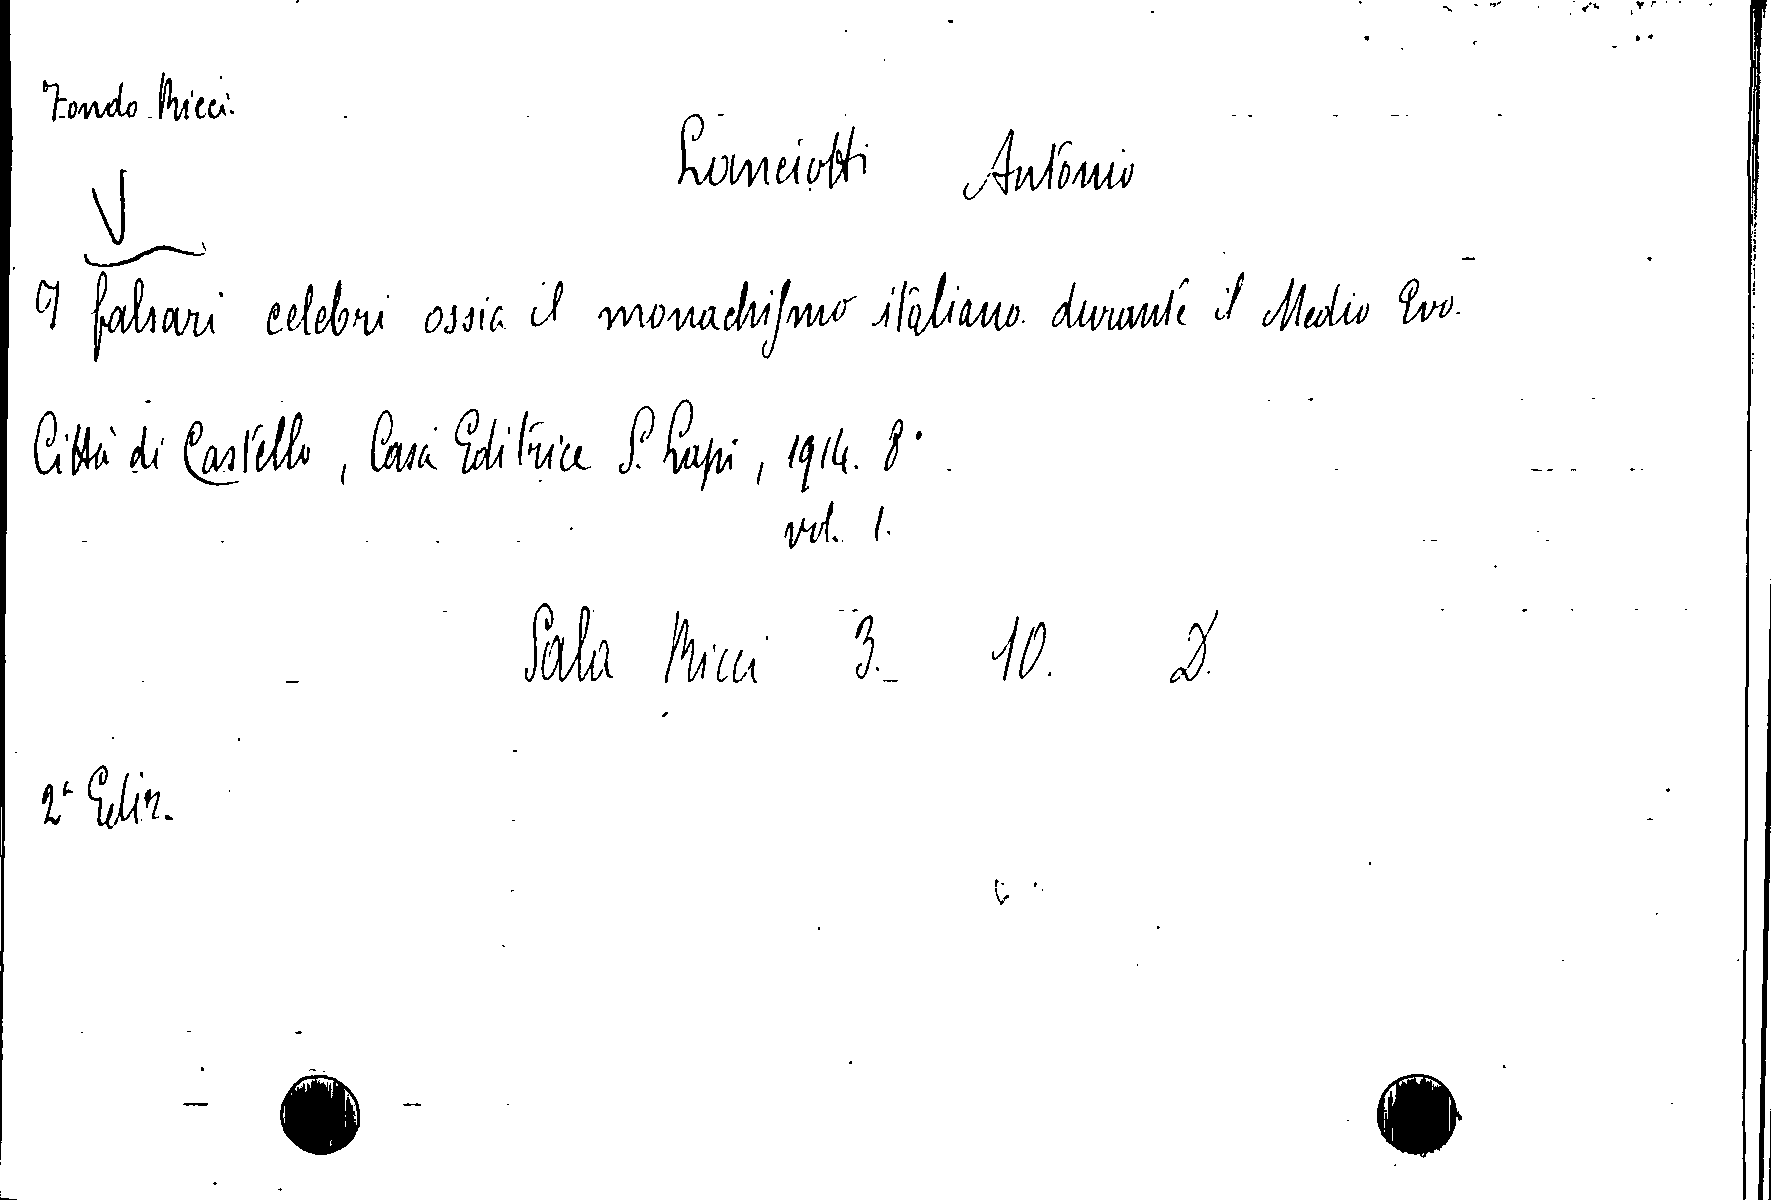 Fondo Ricci.
Lanciotti Antonio
V
I falsari celebri ossia il monachismo italiano durante il Medio Evo.
Città di Castello, Casa Editrice S. Lapi, 1914. 8°
vol. 1.
Sala Ricci 3. 10. D.
2ª Ediz.